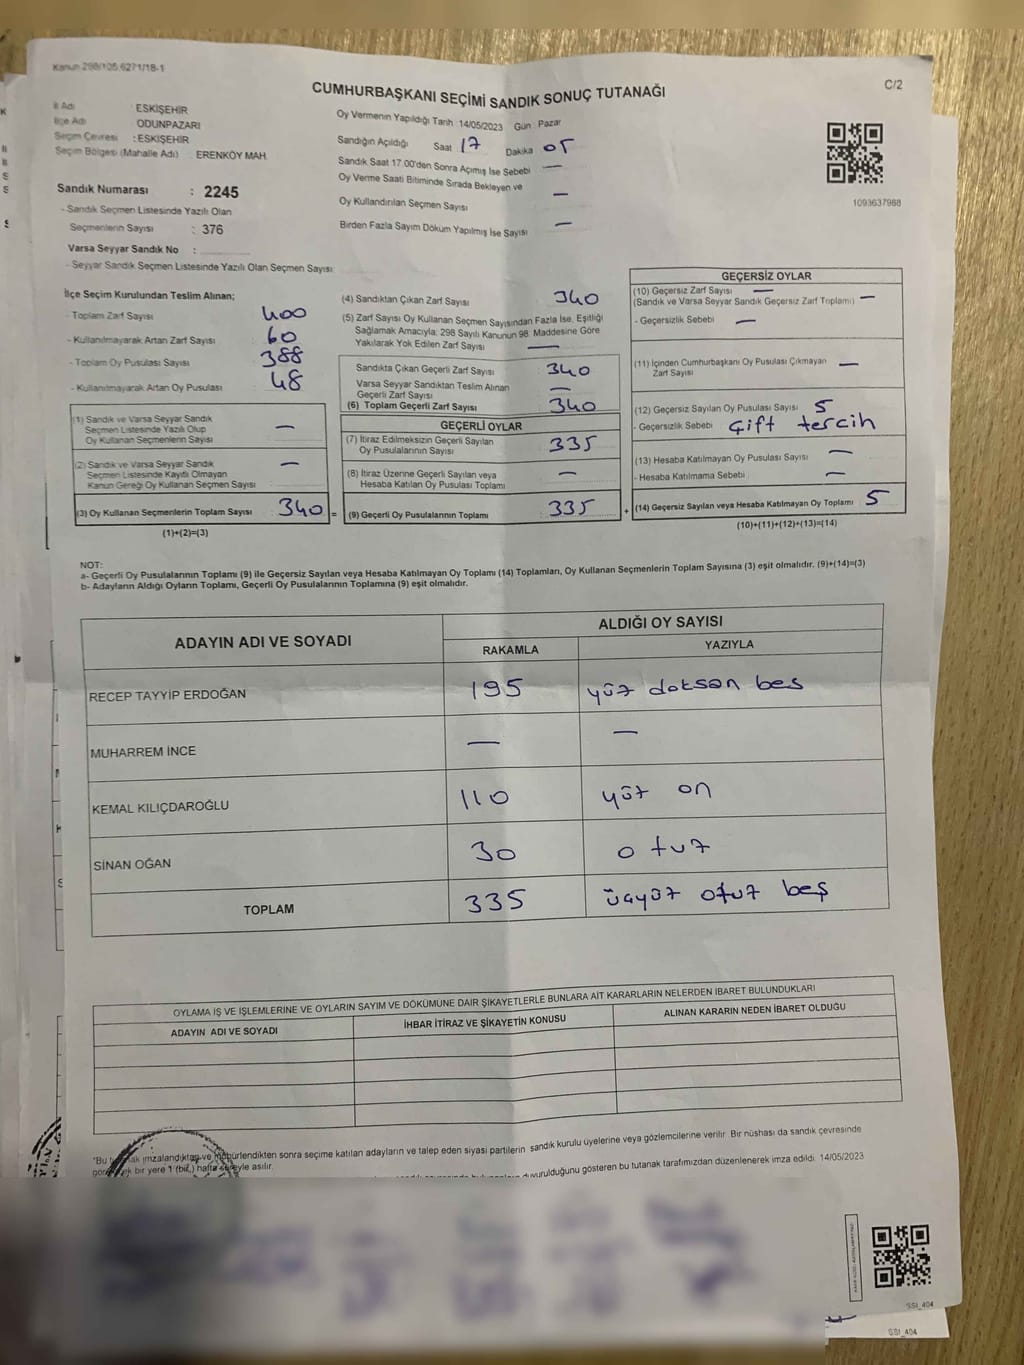 Kanun 298/105.6271/18-1
C/2
CUMHURBAŞKANI SEÇİMİ SANDIK SONUÇ TUTANAĞI
İl Adı : ESKİŞEHİR
İlçe Adı : ODUNPAZARI
Seçim Çevresi : ESKİŞEHİR
Seçim Bölgesi (Mahalle Adı) : ERENKÖY MAH.
Sandık Numarası : 2245
- Sandık Seçmen Listesinde Yazılı Olan
Seçmenlerin Sayısı : 376
Varsa Seyyar Sandık No :
- Seyyar Sandık Seçmen Listesinde Yazılı Olan Seçmen Sayısı:
Oy Vermenin Yapıldığı Tarih :14/05/2023 Gün : Pazar
Sandığın Açıldığı Saat 17 Dakika 05
Sandık Saat 17.00'den Sonra Açımış İse Sebebi —
Oy Verme Saati Bitiminde Sırada Bekleyen ve
Oy Kullandırılan Seçmen Sayısı —
Birden Fazla Sayım Döküm Yapılmış İse Sayısı —
1093637988
İlçe Seçim Kurulundan Teslim Alınan;
- Toplam Zarf Sayısı 400
- Kullanılmayarak Artan Zarf Sayısı 60
- Toplam Oy Pusulası Sayısı 388
- Kullanılmayarak Artan Oy Pusulası 48
(1) Sandık ve Varsa Seyyar Sandık
Seçmen Listesinde Yazılı Olup
Oy Kullanan Seçmenlerin Sayısı —
(2) Sandık ve Varsa Seyyar Sandık
Seçmen Listesinde Kayıtlı Olmayan
Kanun Gereği Oy Kullanan Seçmen Sayısı —
(3) Oy Kullanan Seçmenlerin Toplam Sayısı 340 =
(1)+(2)=(3)
(4) Sandıktan Çıkan Zarf Sayısı 340
(5) Zarf Sayısı Oy Kullanan Seçmen Sayısından Fazla İse, Eşitliği
Sağlamak Amacıyla; 298 Sayılı Kanunun 98. Maddesine Göre
Yakılarak Yok Edilen Zarf Sayısı —
Sandıkta Çıkan Geçerli Zarf Sayısı 340
Varsa Seyyar Sandıktan Teslim Alınan
Geçerli Zarf Sayısı —
(6) Toplam Geçerli Zarf Sayısı 340
GEÇERLİ OYLAR
(7) İtiraz Edilmeksizin Geçerli Sayılan
Oy Pusulalarının Sayısı 335
(8) İtiraz Üzerine Geçerli Sayılan veya
Hesaba Katılan Oy Pusulası Toplamı —
(9) Geçerli Oy Pusulalarının Toplamı 335 +
GEÇERSİZ OYLAR
(10) Geçersiz Zarf Sayısı —
(Sandık ve Varsa Seyyar Sandık Geçersiz Zarf Toplamı) —
- Geçersizlik Sebebi —
(11) İçinden Cumhurbaşkanı Oy Pusulası Çıkmayan
Zarf Sayısı —
(12) Geçersiz Sayılan Oy Pusulası Sayısı 5
- Geçersizlik Sebebi Çift tercih
(13) Hesaba Katılmayan Oy Pusulası Sayısı —
- Hesaba Katılmama Sebebi —
(14) Geçersiz Sayılan veya Hesaba Katılmayan Oy Toplamı 5
(10)+(11)+(12)+(13)=(14)
NOT:
a- Geçerli Oy Pusulalarının Toplamı (9) ile Geçersiz Sayılan veya Hesaba Katılmayan Oy Toplamı (14) Toplamları, Oy Kullanan Seçmenlerin Toplam Sayısına (3) eşit olmalıdır. (9)+(14)=(3)
b- Adayların Aldığı Oyların Toplamı, Geçerli Oy Pusulalarının Toplamına (9) eşit olmalıdır.
ADAYIN ADI VE SOYADI
ALDIĞI OY SAYISI
RAKAMLA YAZIYLA
RECEP TAYYİP ERDOĞAN 195 yüz doksan beş
MUHARREM İNCE — —
KEMAL KILIÇDAROĞLU 110 yüz on
SİNAN OĞAN 30 otuz
TOPLAM 335 üçyüz otuz beş
OYLAMA İŞ VE İŞLEMLERİNE VE OYLARIN SAYIM VE DÖKÜMÜNE DAİR ŞİKAYETLERLE BUNLARA AİT KARARLARIN NELERDEN İBARET BULUNDUKLARI
ADAYIN ADI VE SOYADI İHBAR İTİRAZ VE ŞİKAYETİN KONUSU ALINAN KARARIN NEDEN İBARET OLDUĞU
*Bu imzalandıktan ve mühürlendikten sonra seçime katılan adayların ve talep eden siyasi partilerin sandık kurulu üyelerine veya gözlemcilerine verilir. Bir nüshası da sandık çevresinde
bir yere 1 (bir) hafta süreyle asılır.
duyurulduğunu gösteren bu tutanak tarafımızdan düzenlenerek imza edildi. 14/05/2023
SSI_404
SSI_404